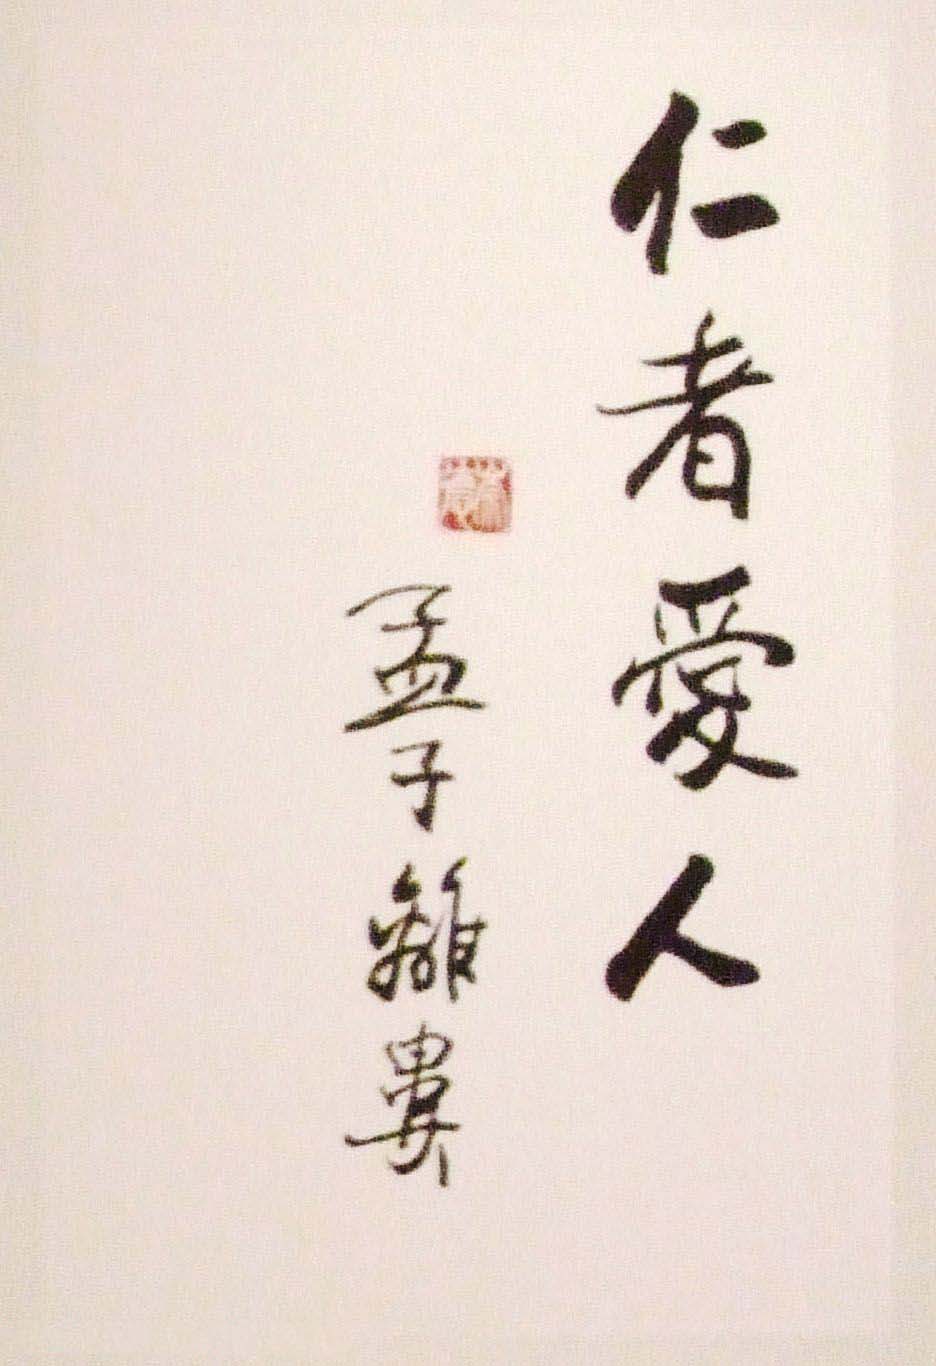 仁者愛人
孟子離婁